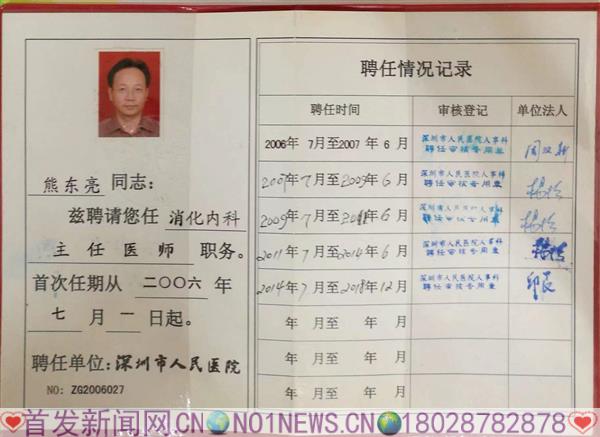 熊东亮 同志:
兹聘请您任 消化内科
主任医师 职务。
首次任期从 二〇〇六 年
七 月 一 日起。
聘任单位: 深圳市人民医院
NO: ZG2006027
聘任情况记录
聘任时间 审核登记 单位法人
2006年 7月至2007年 6月 深圳市人民医院人事科
聘任审核专用章
2007年 7月至2009年 6月 深圳市人民医院人事科
聘任审核专用章
2009年 7月至2011年 6月 深圳市人民医院人事科
聘任审核专用章
2011年 7月至2014年 6月 深圳市人民医院人事科
聘任审核专用章
2014年 7月至2018年 12月 深圳市人民医院人事科
聘任审核专用章
年 月至 年 月
年 月至 年 月
年 月至 年 月
首发新闻网.CN NO1NEWS.CN 18028782878